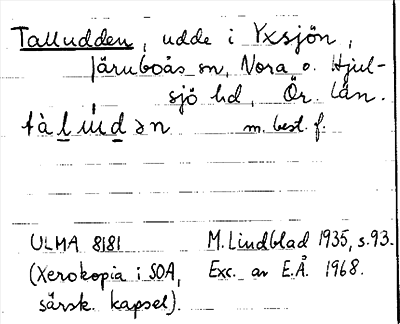 Talludden, udde i Yxsjön,
Järnboås sn, Nora o. Hjul-
sjö hd, Ör. län.
tàlúdən m. best. f.
ULMA 8181 M. Lindblad 1935, s. 93.
(Xerokopia i SOA, Exc. av E.Å. 1968.
särsk. kapsel).